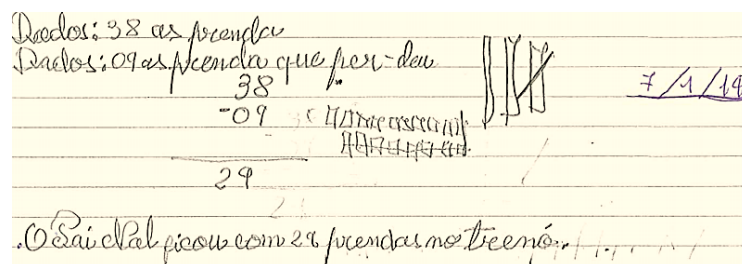 Dados: 38 as prenda
Dados: 09 as prenda que per-deu
38
-09
29
7/1/19
.O Pai Natal ficou com 29 prendas no trenó.